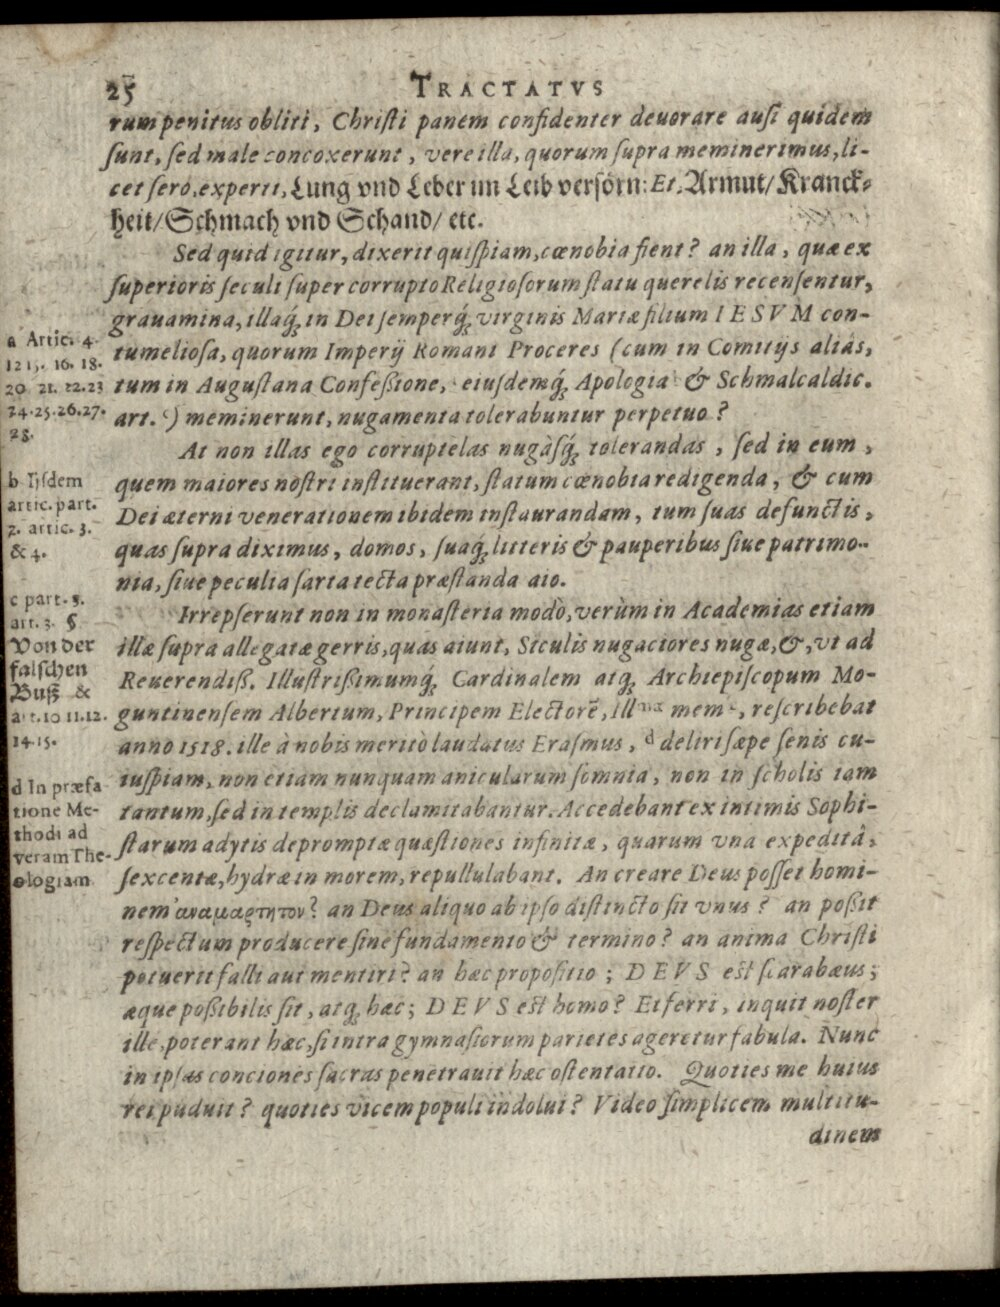 25 TRACTATVS
rum penitus obliti, Christi panem confidenter deuorare ausi quidem
sunt, sed male concoxerunt, vere illa, quorum supra meminerimus, li-
cet sero, experti, Lung vnd Leber im Leib versorn: Et, Armut/ Kranck-
heit/ Schmach vnd Schand/ etc.
Sed quid igitur, dixerit quispiam, cœnobia fient? an illa, quæ ex
superioris seculi super corrupto Religiosorum statu querelis recensentur,
grauamina, illaq́; in Dei semperq́; virginis Mariæ filium IESVM con-
tumeliosa, quorum Imperij Romani Proceres (cum in Comitijs aliàs,
tum in Augustana Confeßione, eiusdemq́; Apologia & Schmalcaldic.
art. c) meminerunt, nugamenta tolerabuntur perpetuo?
At non illas ego corruptelas nugàsq́; tolerandas, sed in eum,
quem maiores nostri instituerant, statum cœnobia redigenda, & cum
Dei æterni venerationem ibidem instaurandam, tum suas defunctis,
quas supra diximus, domos, suaq́; litteris & pauperibus siue patrimo-
nia, siue peculia sarta tecta præstanda aio.
Irrepserunt non in monasteria modò, verùm in Academias etiam
illæ supra allegatæ gerris, quas aiunt, Siculis nugaciores nugæ, &, vt ad
Reuerendiß. Illustrißimumq́; Cardinalem atq; Archiepiscopum Mo-
guntinensem Albertum, Principem Electorẽ, rescribebat
anno 1518. ille à nobis meritò laudatus Erasmus, d deliri sæpe senis cu-
iuspiam, non etiam nunquam anicularum somnia, non in scholis iam
tantum, sed in templis declamitabantur. Accedebant ex intimis Sophi-
starum adytis depromptæ quæstiones infinitæ, quarum vna expedità,
sexcentæ, hydræ in morem, repullulabant. An creare Deus posset homi-
nem ἀναμαρτητον? an Deus aliquo ab ipso distincto sit vnus? an poßit
respectum producere sine fundamento & termino? an anima Christi
potuerit falli aut mentiri? an hæc propositio; DEVS est scarabæus;
æque poßibilis sit, atq; hæc; DEVS est homo? Et ferri, inquit noster
ille, poterant hæc, si intra gymnasiorum parietes ageretur fabula. Nunc
in ipsas conciones sacras penetrauit hæc ostentatio. Quoties me huius
rei puduit? quoties vicem populi indolui? Video simplicem multitu-
dinem
a Artic. 4.
12 15. 16. 18.
20 21. 22. 23
24. 25. 26. 27.
28.
b Iisdem
artic. part.
2. artic. 3.
& 4.
c part. 3.
art. 3. §
Von der
falschen
Buß &
art. 10 11. 12.
14. 15.
d In præfa
tione Me-
thodi ad
veram The-
ologiam